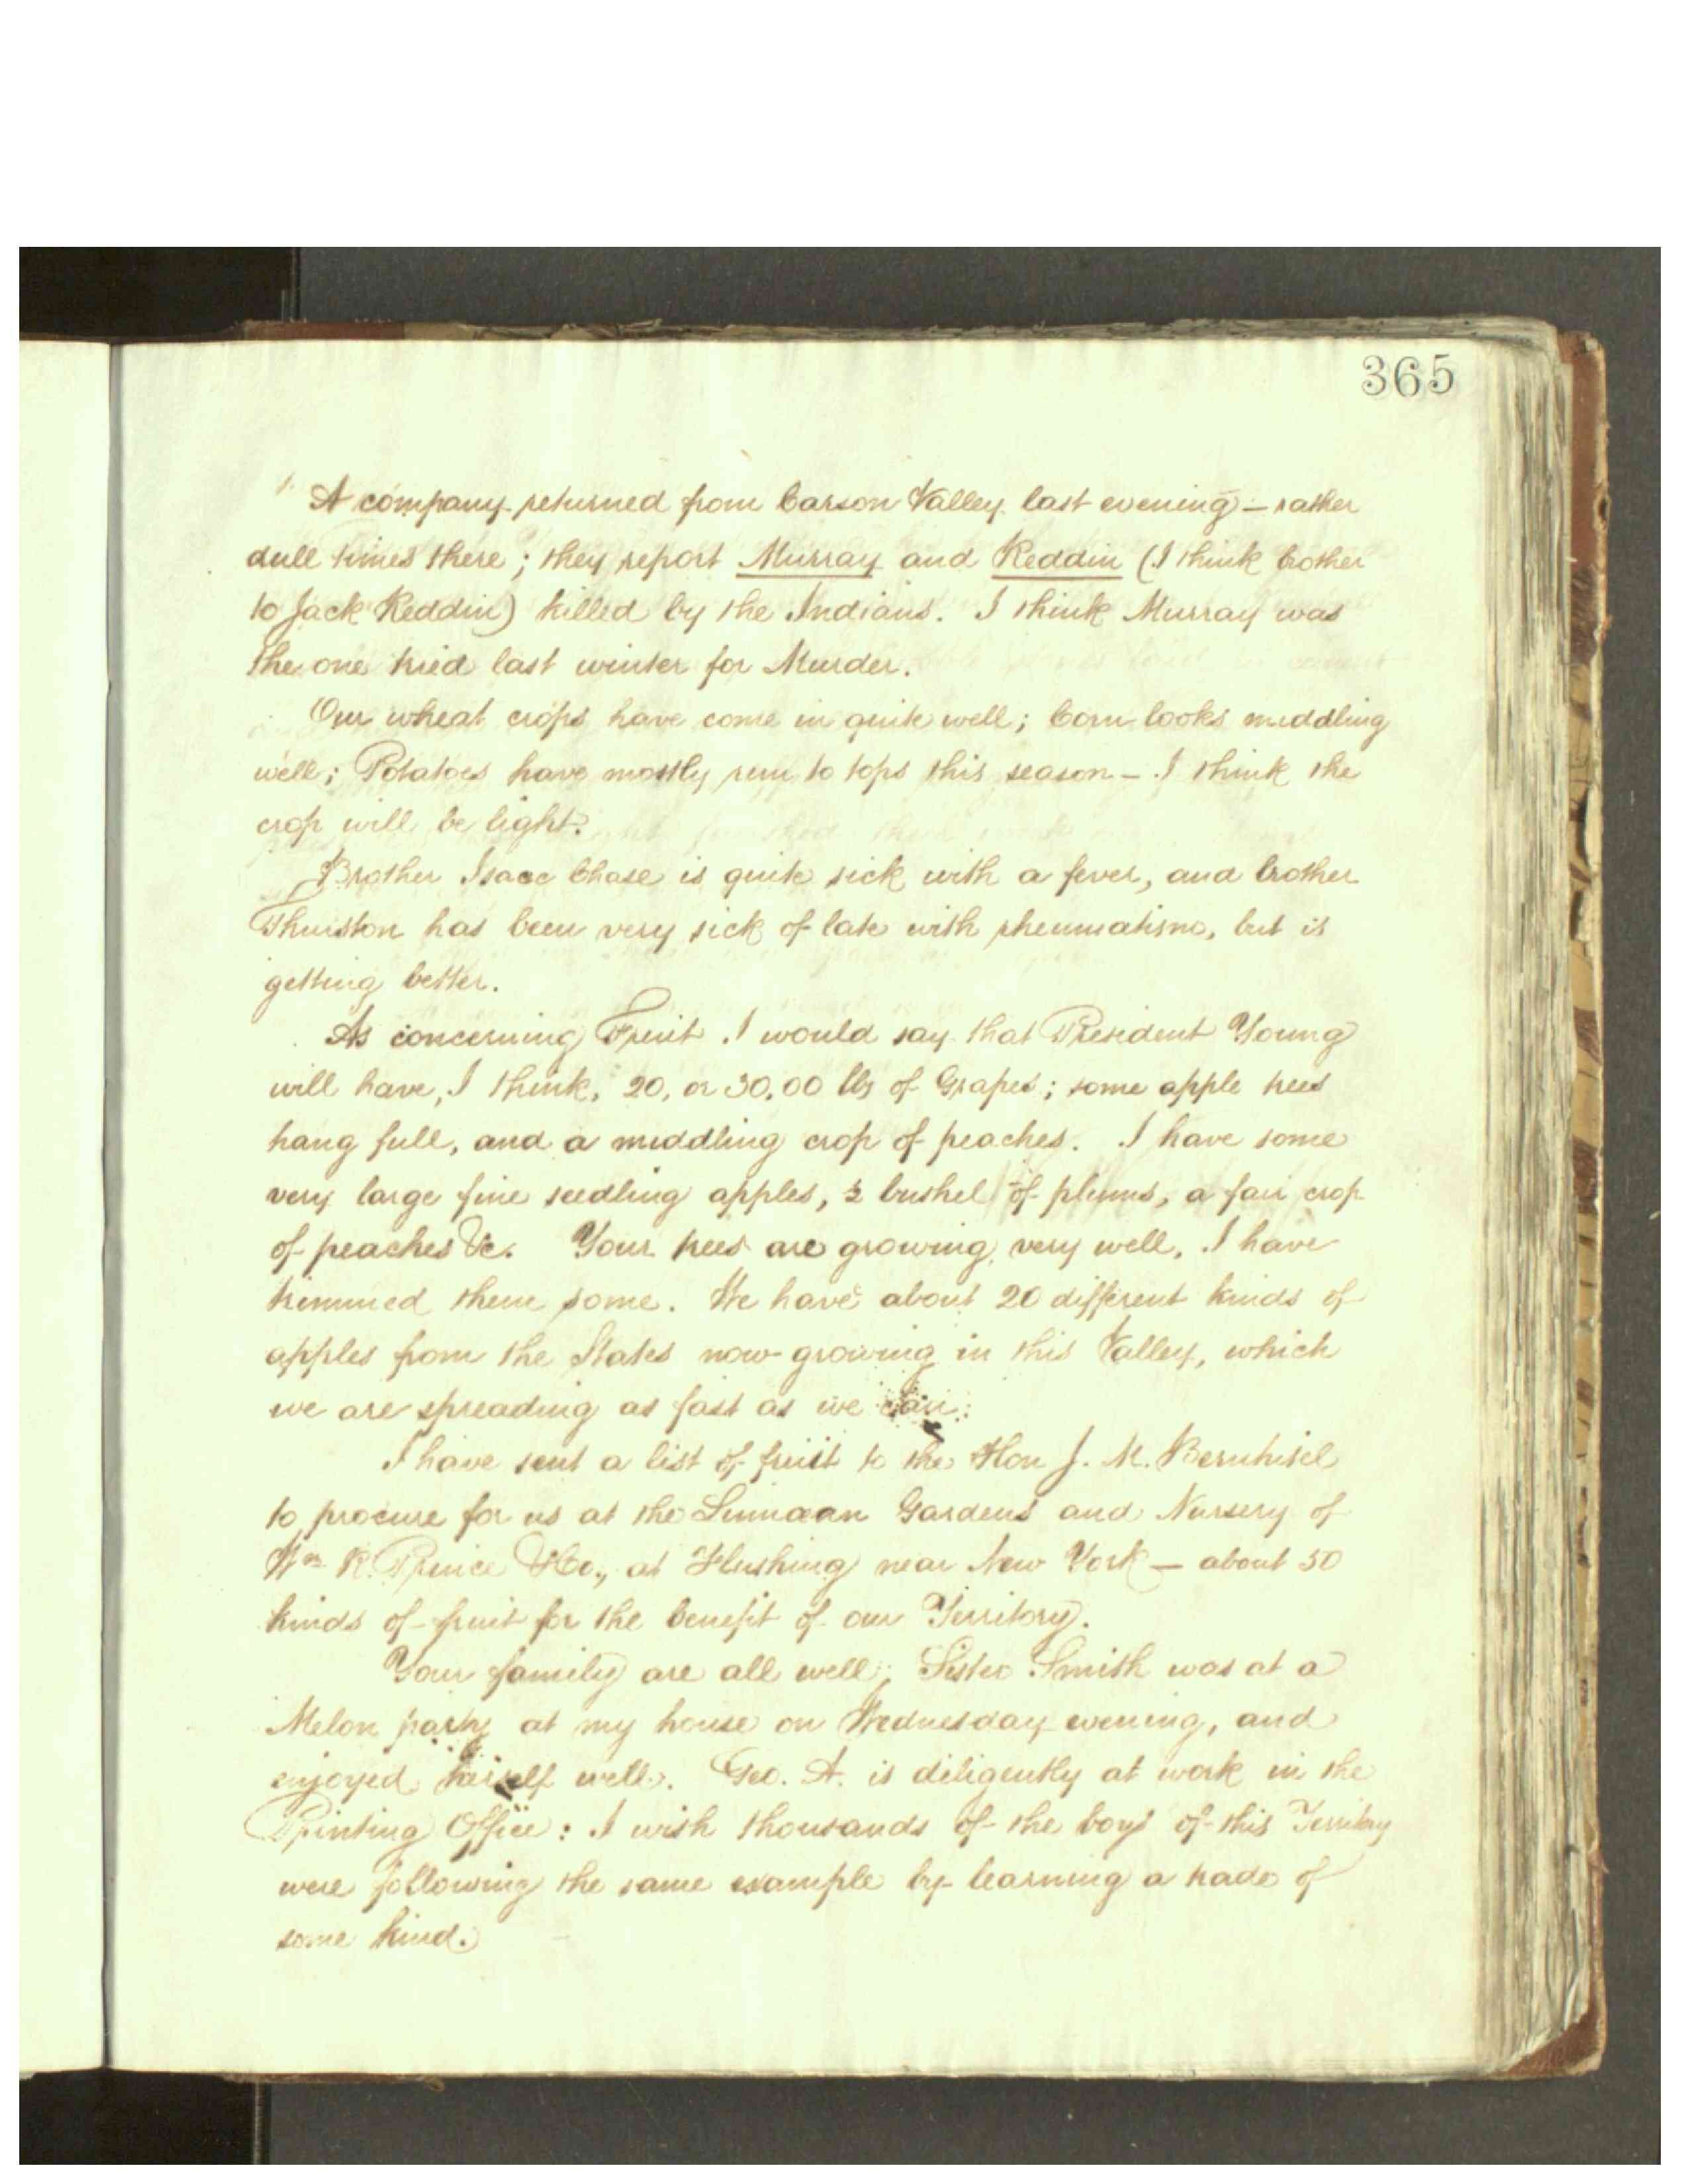 365
A company returned from Carson Valley last evening – rather
dull times there; they report Murray and Reddin (I think brother
to Jack Reddin) killed by the Indians. I think Murray was
the one tried last winter for Murder.
Our wheat crops have come in quite well; Corn looks middling
well; Potatoes have mostly run to tops this season – I think the
crop will be light.
Brother Isaac Chase is quite sick with a fever, and brother
Thurston has been very sick of late with rheumatism, but is
getting better.
As concerning Fruit I would say that President Young
will have, I think, 20, or 30,00 lbs of Grapes; some apple trees
hang full, and a middling crop of peaches. I have some
very large fine seedling apples, ½ bushel of plums, a fair crop
of peaches &c. Your trees are growing very well, I have
trimmed them some. We have about 20 different kinds of
apples from the States now growing in this Valley, which
we are spreading as fast as we can.
I have sent a list of fruit to the Hon J. M. Bernhisel
to procure for us at the Linnaean Gardens and Nursery of
Wm R. Prince & Co., at Flushing near New York – about 50
kinds of fruit for the benefit of our Territory.
Your family are all well; Sister Smith was at a
Melon party at my house on Wednesday evening, and
enjoyed herself well. Geo. A. is diligently at work in the
Printing Office: I wish thousands of the boys of this Territory
were following the same example by learning a trade of
some kind.